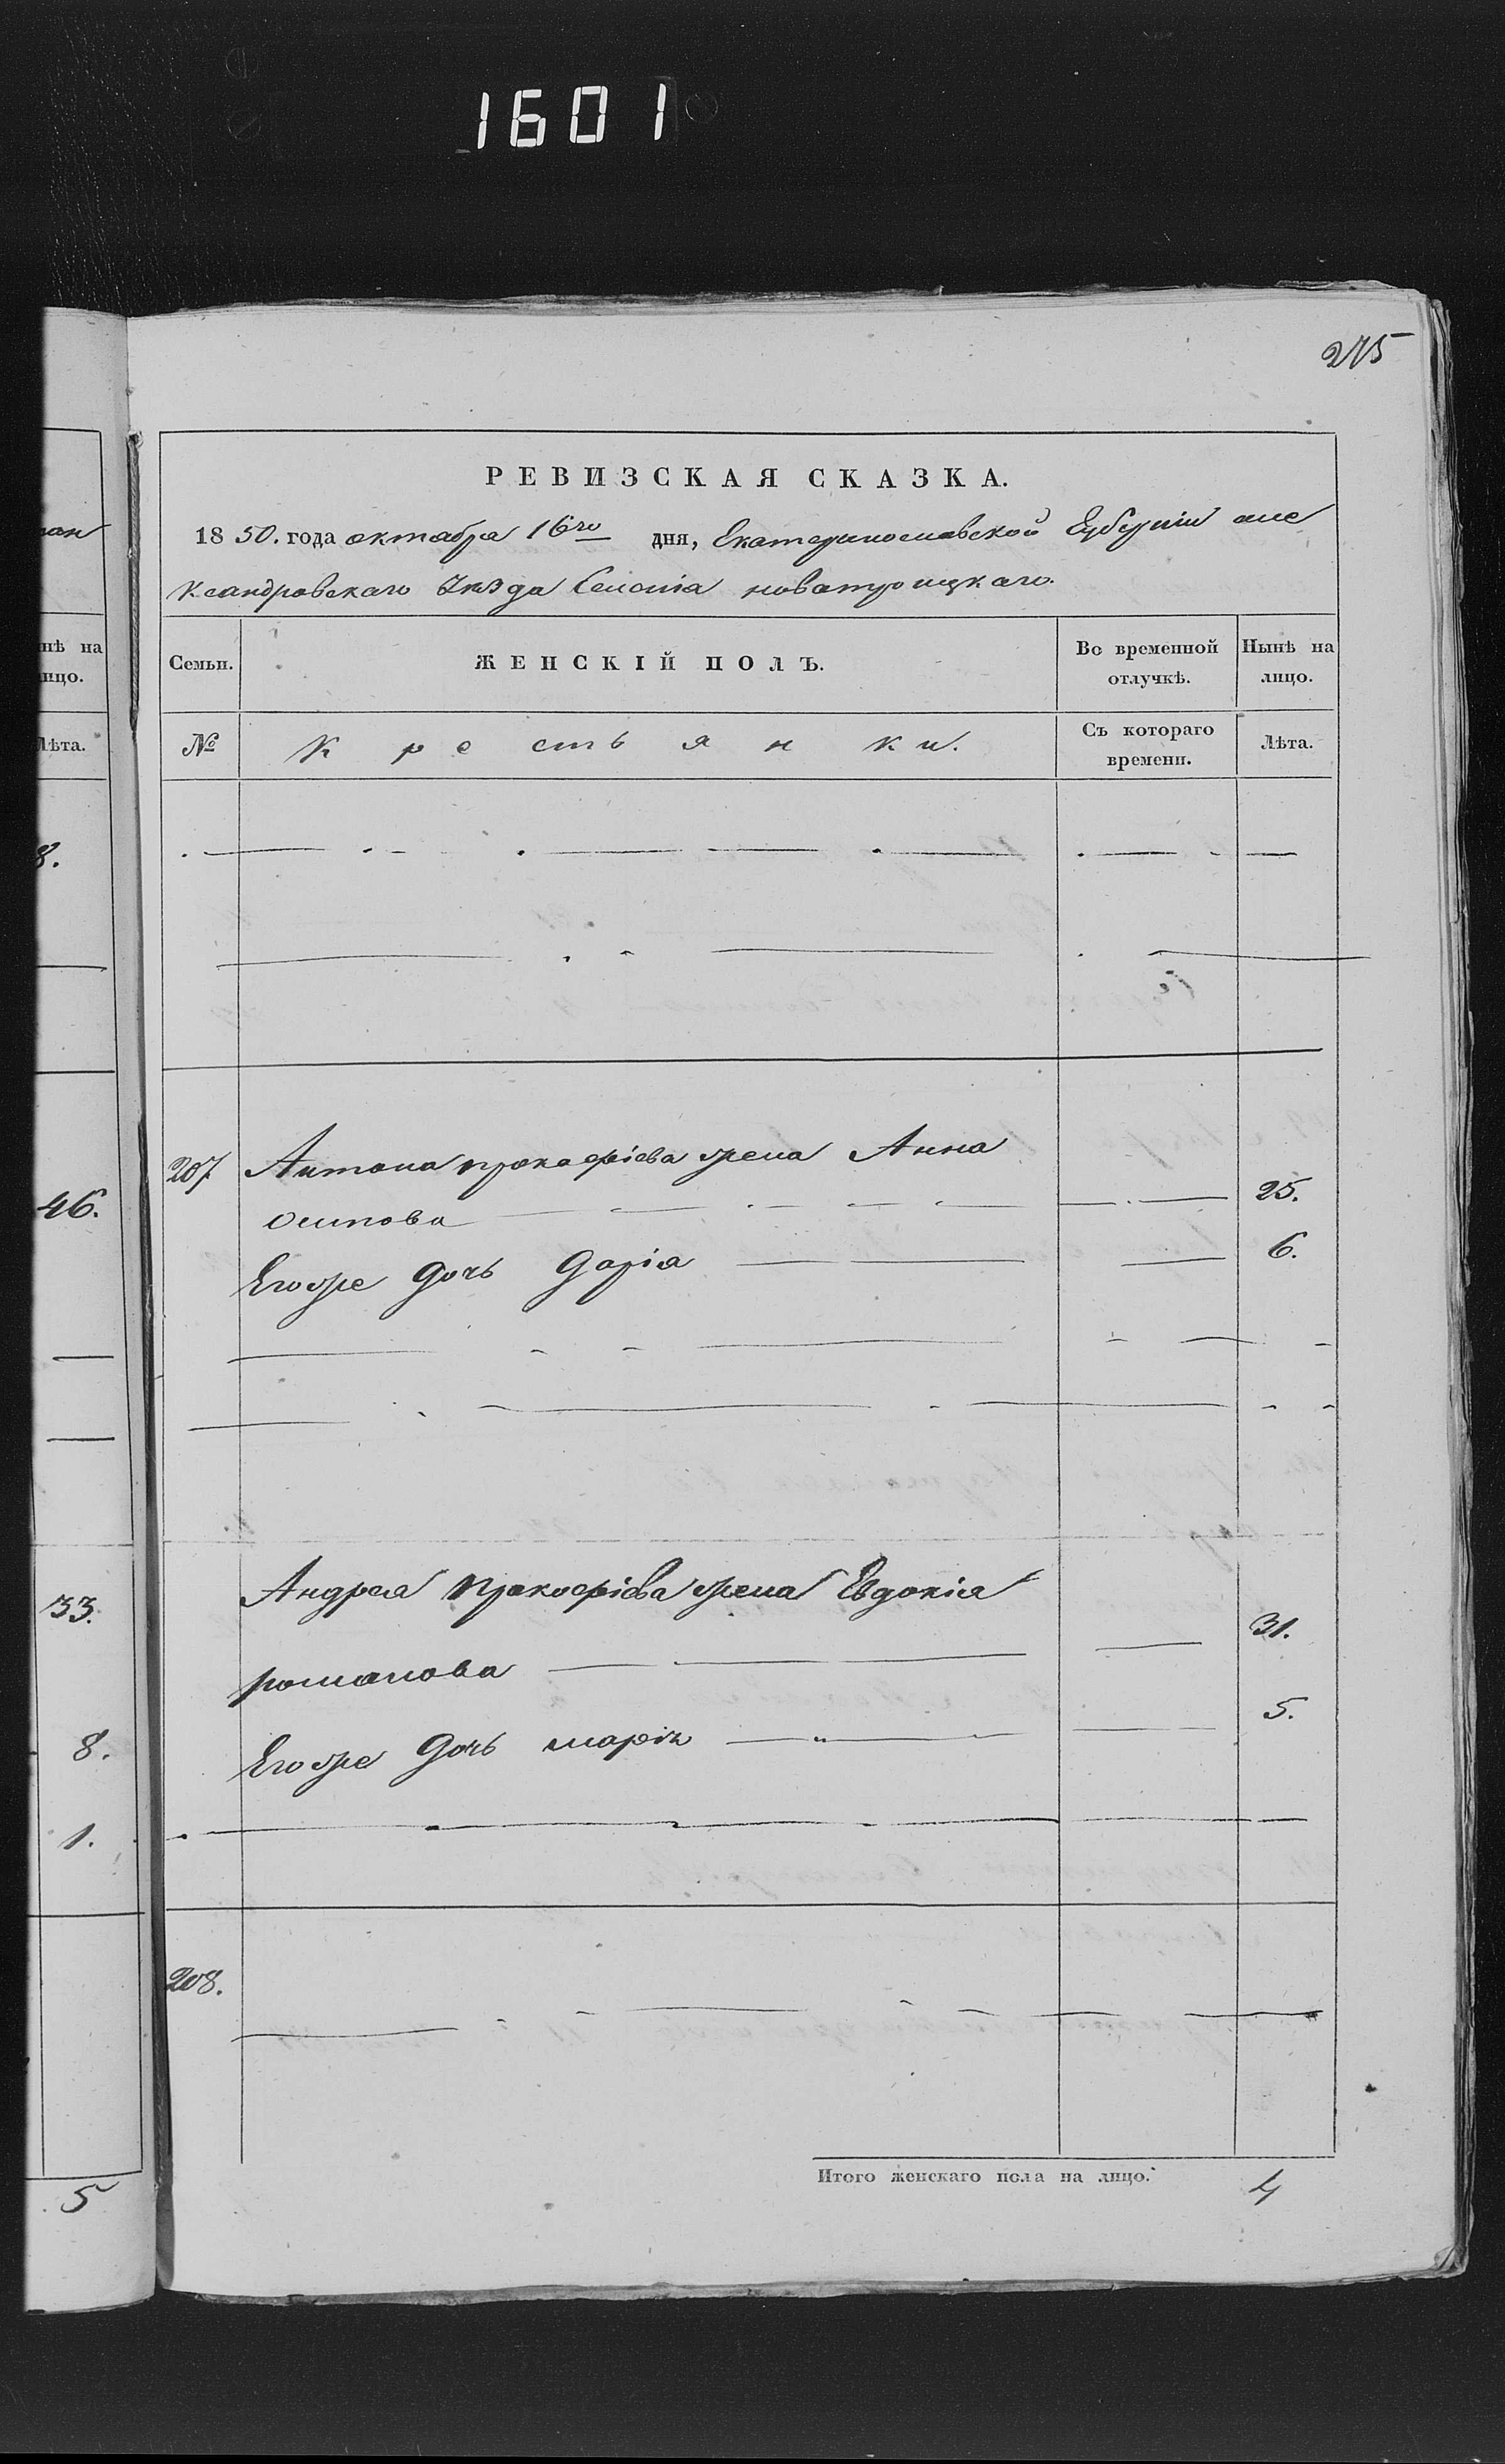 1601
275
РЕВИЗСКАЯ СКАЗКА.
1850. года октабра 16го дня, Екатеринославской Губернiи але
ксандровскаго Уѣзда Селенiя новотроицкаго.
Семьи.
ЖЕНСКIЙ ПОЛЪ.
Во временной отлучкѣ.
Нынѣ на лицо.
№
Крестьянки.
Съ котораго времени.
Лѣта.
нѣ на
ицо.
Лѣта.
8.
207 Антона прокофiева жена Анна
осипова 25.
46.
Егоже дочь дарiя 6.
Андрея прокофiева жена Евдокiя
33.
романова 31.
Егоже дочь марiя 5.
8.
1.
208.
Итого женскаго пола на лицо. 4
5